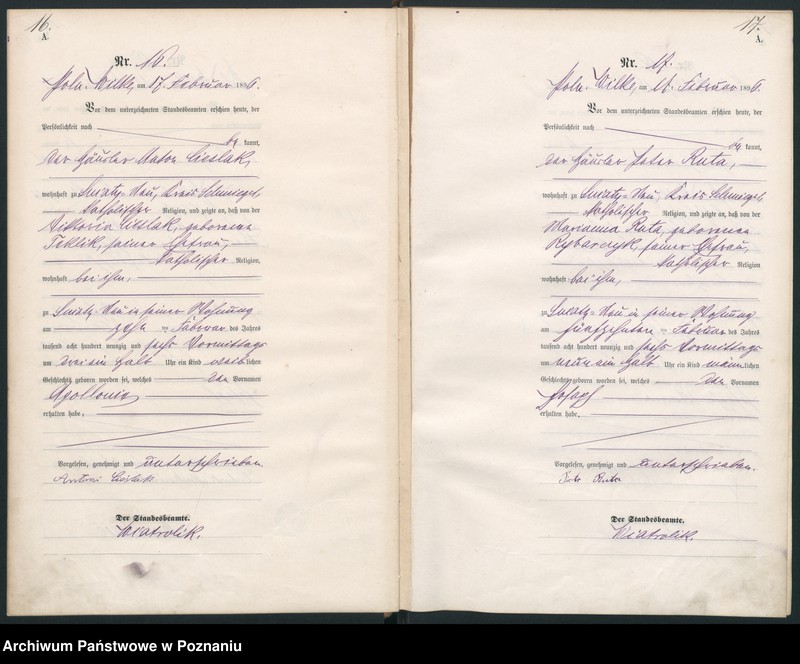 16.
A.
Nr. 16.
Poln. Wilke, am 17. Februar 1896.
Vor dem unterzeichneten Standesbeamten erschien heute, der
Persönlichkeit nach
be kannt,
der Häusler Anton Cieslak,
wohnhaft zu Sniaty-Hau, Kreis Schmiegel,
katholischer Religion, und zeigte an, daß von der
Viktoria Cieslak, geborenen
Teklik, seiner Ehefrau,
katholischer Religion,
wohnhaft bei ihm,
zu Sniaty-Hau in seiner Wohnung
am zehn ten Februar des Jahres
tausend acht hundert neunzig und sechs Vormittags
um drei ein halb Uhr ein Kind weib lichen
Geschlechts geboren worden sei, welches den Vornamen
Apollonia
erhalten habe.
Vorgelesen, genehmigt und unterschrieben.
Antoni Cieślak
Der Standesbeamte.
Wiatrolik.
17.
A.
Nr. 17.
Poln. Wilke, am 17. Februar 1896.
Vor dem unterzeichneten Standesbeamten erschien heute, der
Persönlichkeit nach
be kannt,
der Häusler Peter Ruta,
wohnhaft zu Sniaty-Hau, Kreis Schmiegel,
katholischer Religion, und zeigte an, daß von der
Marianna Ruta, geborenen
Rybarczyk, seiner Ehefrau,
katholischer Religion
wohnhaft bei ihm,
zu Sniaty-Hau in seiner Wohnung
am fünfzehnten Februar des Jahres
tausend acht hundert neunzig und sechs Vormittags
um neun ein halb Uhr ein Kind männ lichen
Geschlechts geboren worden sei, welches den Vornamen
Joseph
erhalten habe.
Vorgelesen, genehmigt und unterschrieben.
Ruta
Der Standesbeamte.
Wiatrolik.
Archiwum Państwowe w Poznaniu